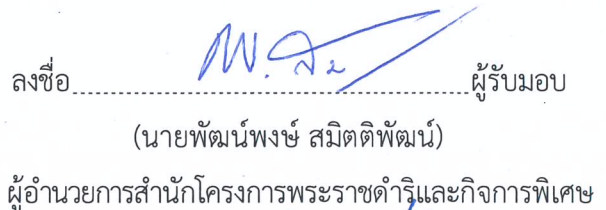 ลงชื่อ........................................ผู้รับมอบ
(นายพัฒน์พงษ์ สมิตติพัฒน์)
ผู้อำนวยการสำนักโครงการพระราชดำริและกิจการพิเศษ